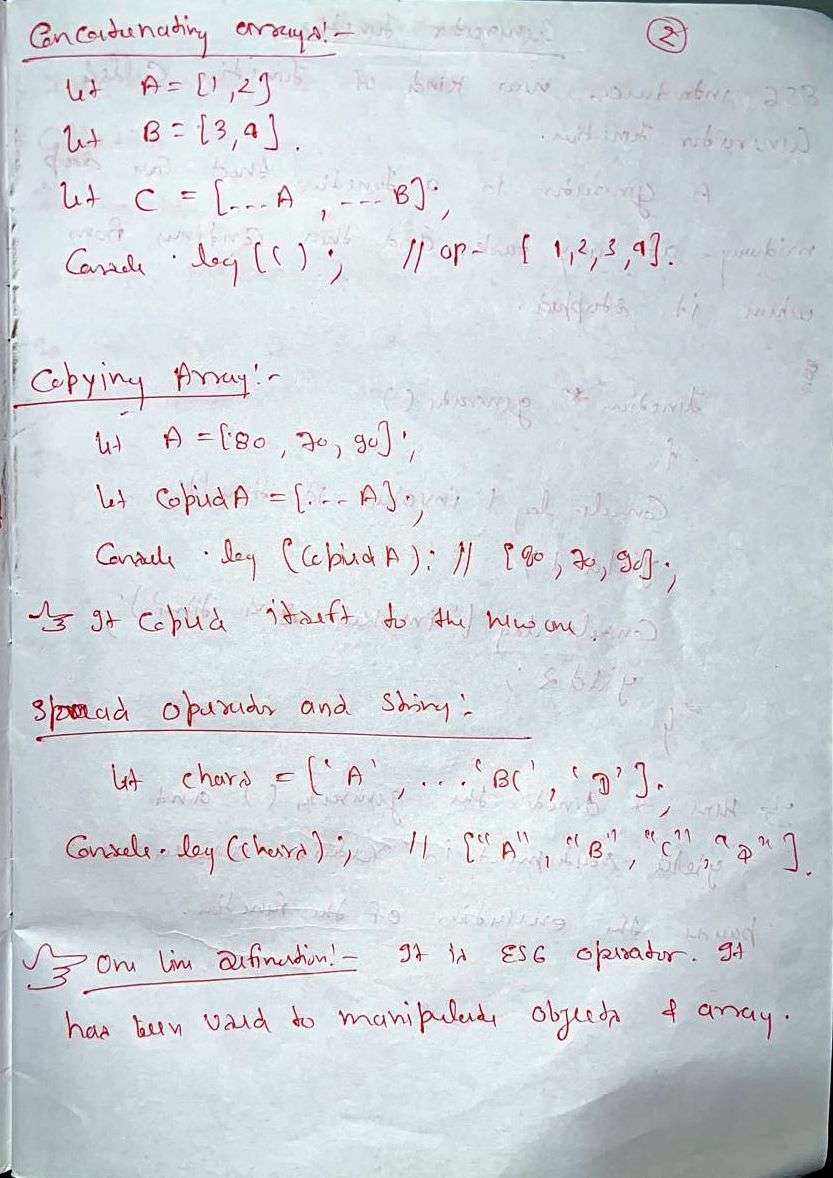 Concatenating arrays:-
②
let A = [1,2]
let B = [3,4].
let C = [...A , ...B];
Console.log(C); // op- [ 1,2,3,4].
Copying Array:-
let A = [80, 70, 90];
let CopiedA = [...A];
Console.log (CopiedA); // [80, 70, 90];
It Copied itself to the new one.
Spread operator and String:-
let chars = ['A', ...'BC', 'D'];
Console.log(Chars); // ["A", "B", "C", "D"].
One line Defination:- It is ES6 operator. It
has been used to manipulate objects & array.